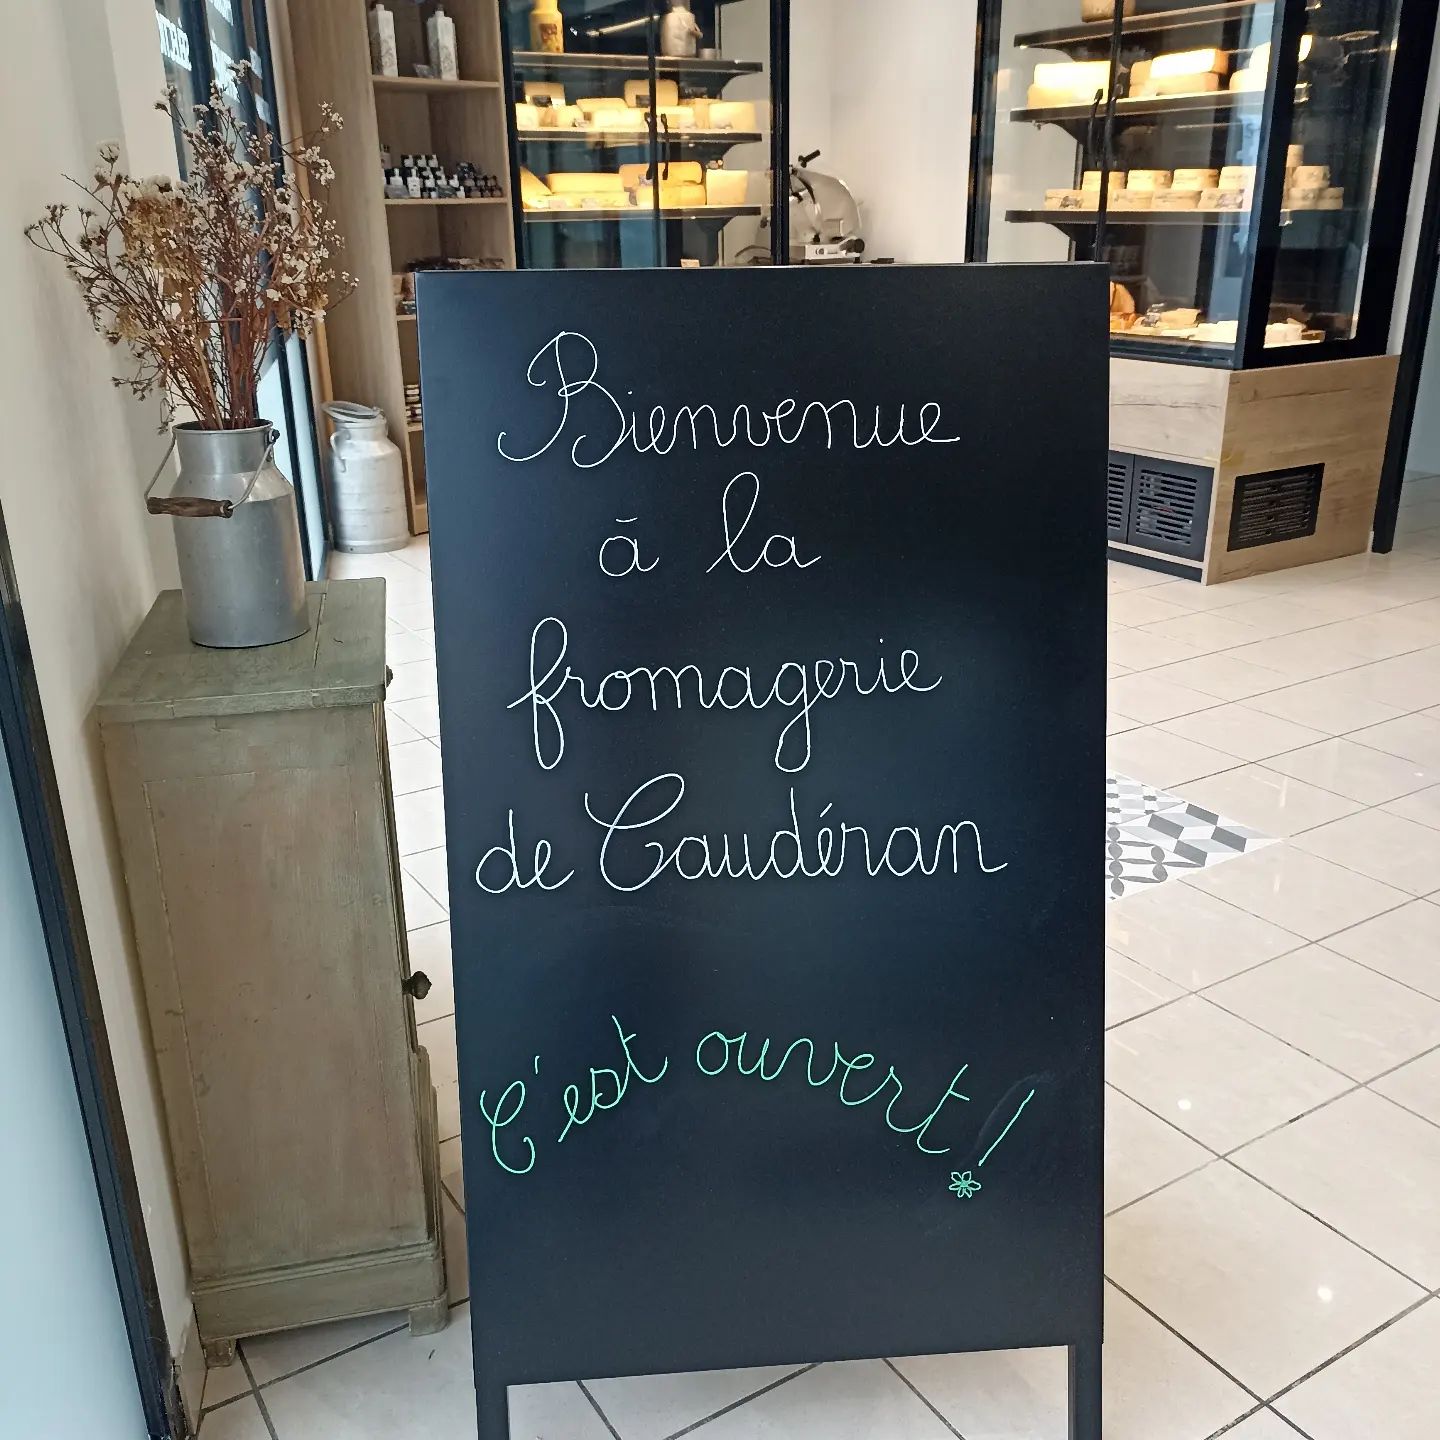 Bienvenue
à la
fromagerie
de Caudéran
C'est ouvert !